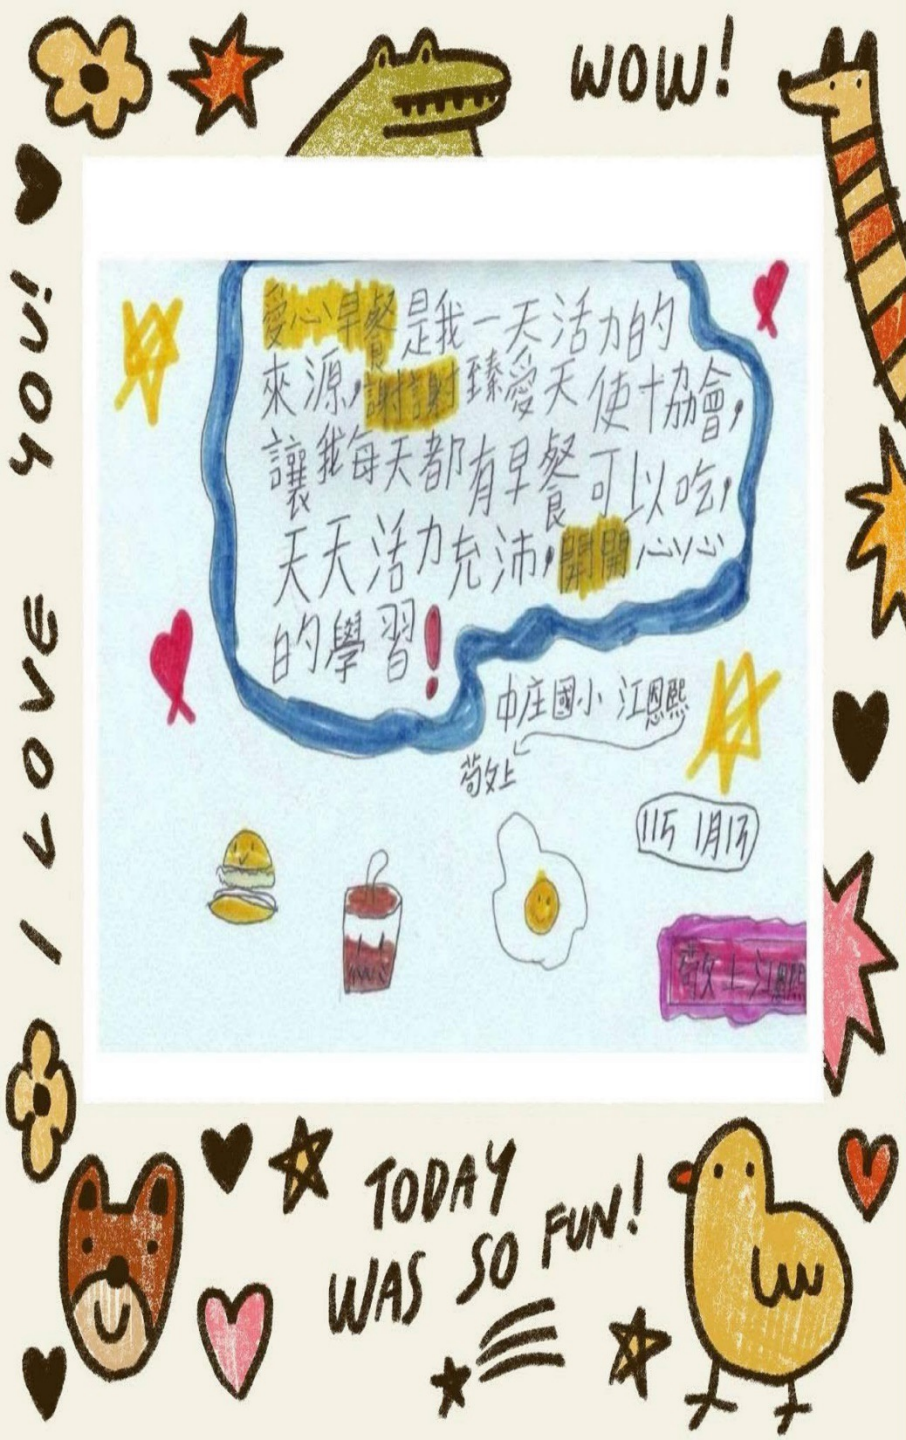 WOW!
I LOVE YOU!
愛心早餐是我一天活力的
來源,謝謝臻愛天使協會,
讓我每天都有早餐可以吃,
天天活力充沛,開開心心
的學習!
中庄國小 江恩熙
敬上
115 1月13
敬上江恩熙
TODAY
WAS SO FUN!